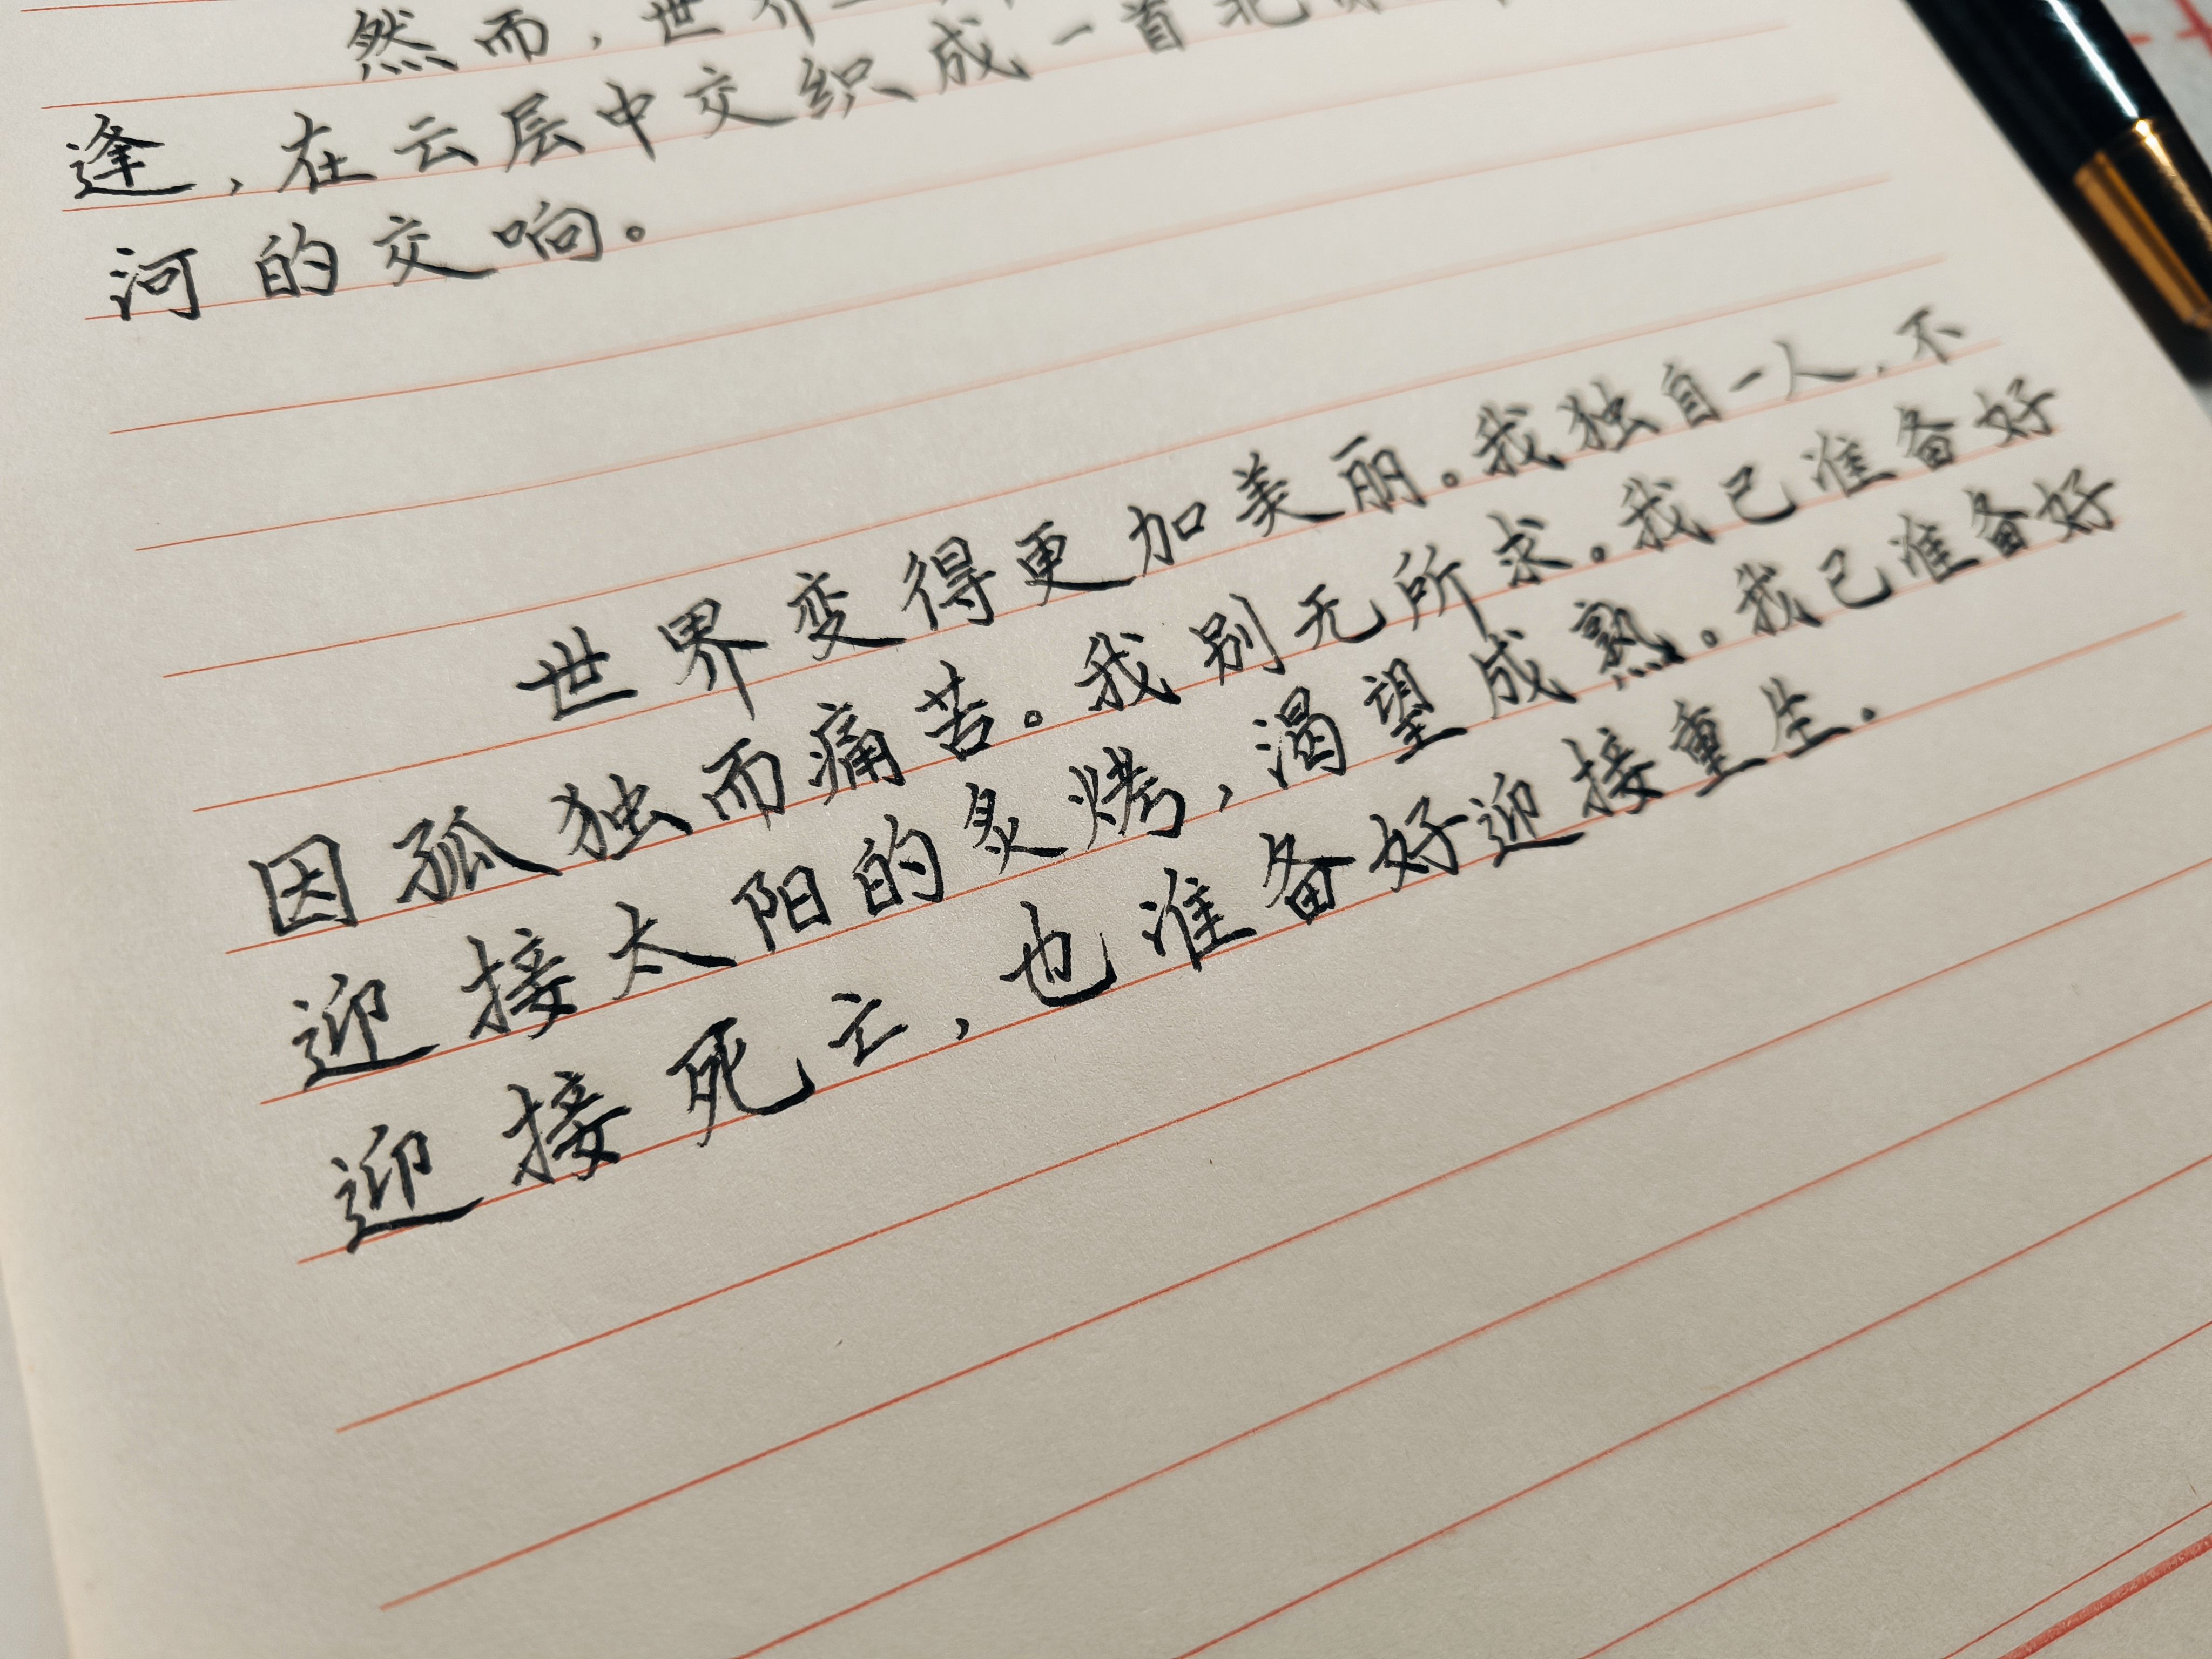 然而，世界一
逢，在云层中交织成一首
河的交响。
世界变得更加美丽。我独自一人，不
因孤独而痛苦。我别无所求。我已准备好
迎接太阳的炙烤，渴望成熟。我已准备好
迎接死亡，也准备好迎接重生。